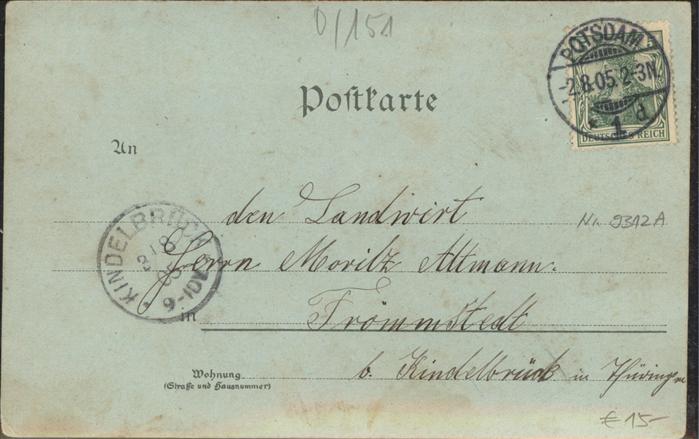 D/151
POTSDAM
-2.8.05.2-3N.
* 1 d.
5
DEUTSCHES REICH
Postkarte
An
den Landwirt
Nr. 9312A
KINDELBRÜCK
3 8
05
9-10V
Herrn Moritz Altmann.
in Frömmstedt
Wohnung
(Straße und Hausnummer)
b. Kindelbrück in Thüringen
€ 15-